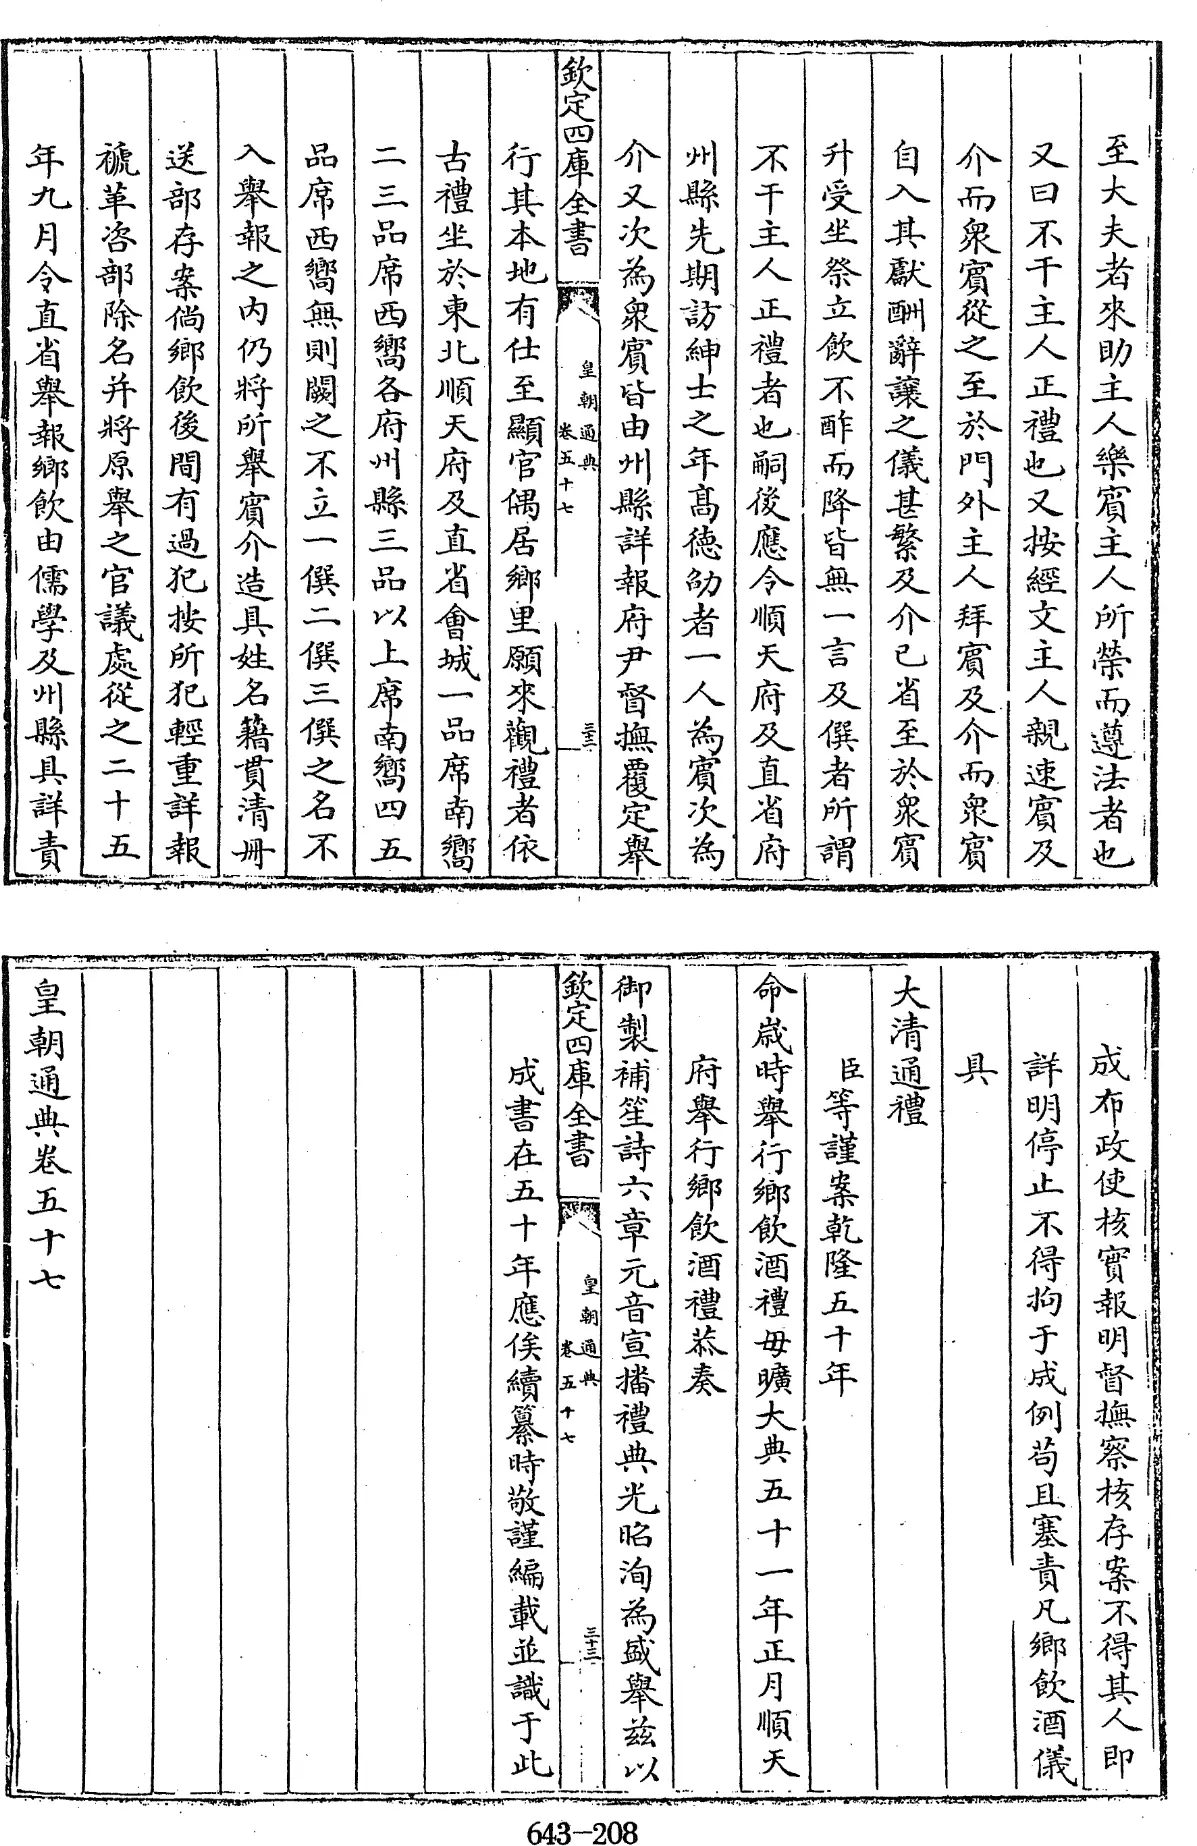 至大夫者來助主人樂賓主人所榮而遵法者也
又曰不干主人正禮也又按經文主人親速賓及
介而衆賓從之至於門外主人拜賓及介而衆賓
自入其獻酬辭讓之儀甚繁及介已省至於衆賓
升受坐祭立飲不酢而降皆無一言及僎者所謂
不干主人正禮者也嗣後應令順天府及直省府
州縣先期訪紳士之年高德劭者一人為賓次為
介又次為衆賓皆由州縣詳報府尹督撫覆定舉
欽定四庫全書
皇朝通典
卷五十七
三十三
行其本地有仕至顯官偶居鄉里願來觀禮者依
古禮坐於東北順天府及直省會城一品席南嚮
二三品席西嚮各府州縣三品以上席南嚮四五
品席西嚮無則闕之不立一僎二僎三僎之名不
入舉報之內仍將所舉賓介造具姓名籍貫清冊
送部存案倘鄉飲後間有過犯按所犯輕重詳報
褫革咨部除名并將原舉之官議處從之二十五
年九月令直省舉報鄉飲由儒學及州縣具詳責
成布政使核實報明督撫察核存案不得其人即
詳明停止不得拘于成例苟且塞責凡鄉飲酒儀
具
大清通禮
臣等謹案乾隆五十年
命歲時舉行鄉飲酒禮毋曠大典五十一年正月順天
府舉行鄉飲酒禮恭奏
御製補笙詩六章元音宣播禮典光昭洵為盛舉茲以
欽定四庫全書
皇朝通典
卷五十七
三十三
成書在五十年應俟續纂時敬謹編載並識于此
皇朝通典卷五十七
643-208